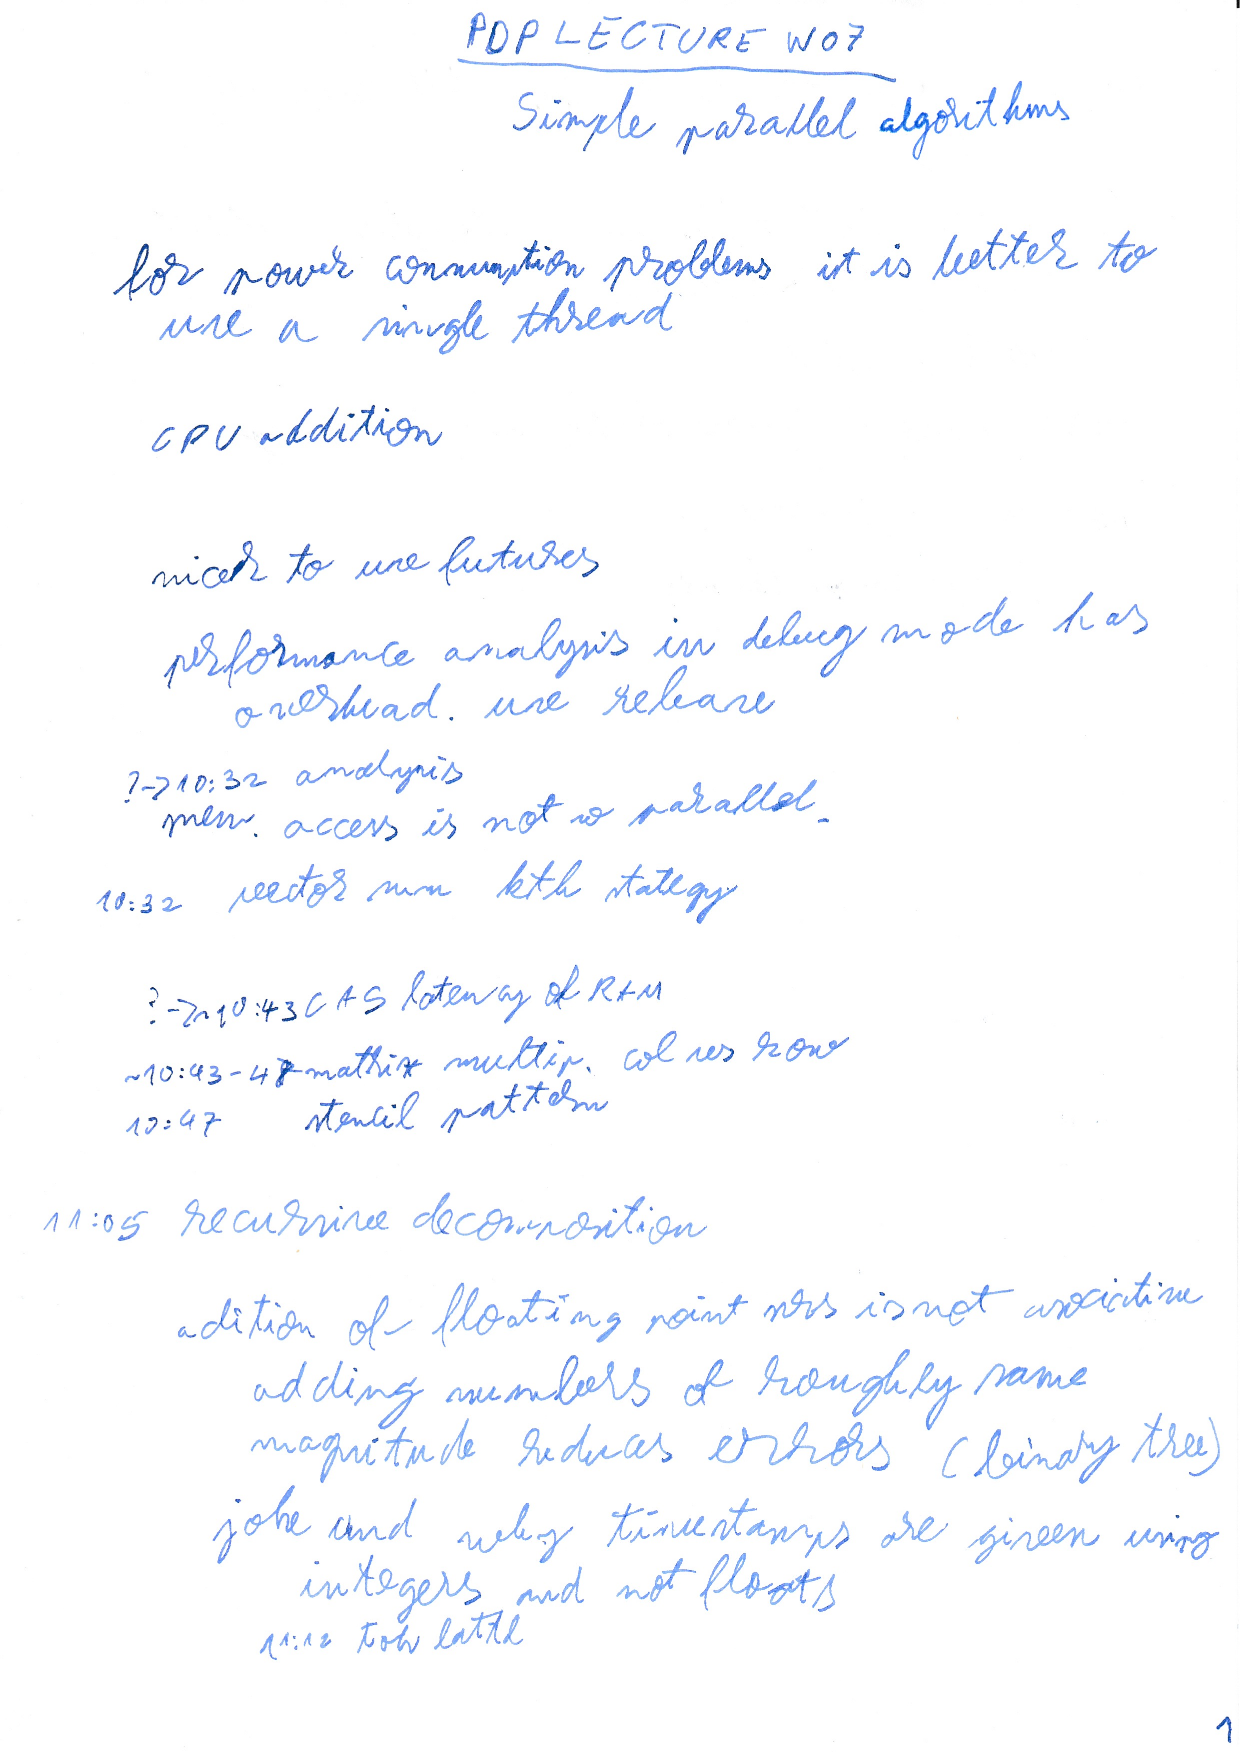 PDP LECTURE W07
Simple parallel algorithms
for power consumption problems it is better to
use a single thread
CPU addition
nicer to use futures
performance analysis in debug mode has
overhead. use release
?->10:32 analysis
mem. access is not so parallel.
10:32 vector sum kth stategy
?->~10:43 CAS latency of RAM
~10:43-47 matrix multip. col ves row
10:47 stencil pattern
11:05 recursive decomposition
adition of floating point nrs is not asociative
adding numbers of roughly same
magnitude reduces errors (binary tree)
joke and why timestamps are given using
integers and not floats
11:12
1